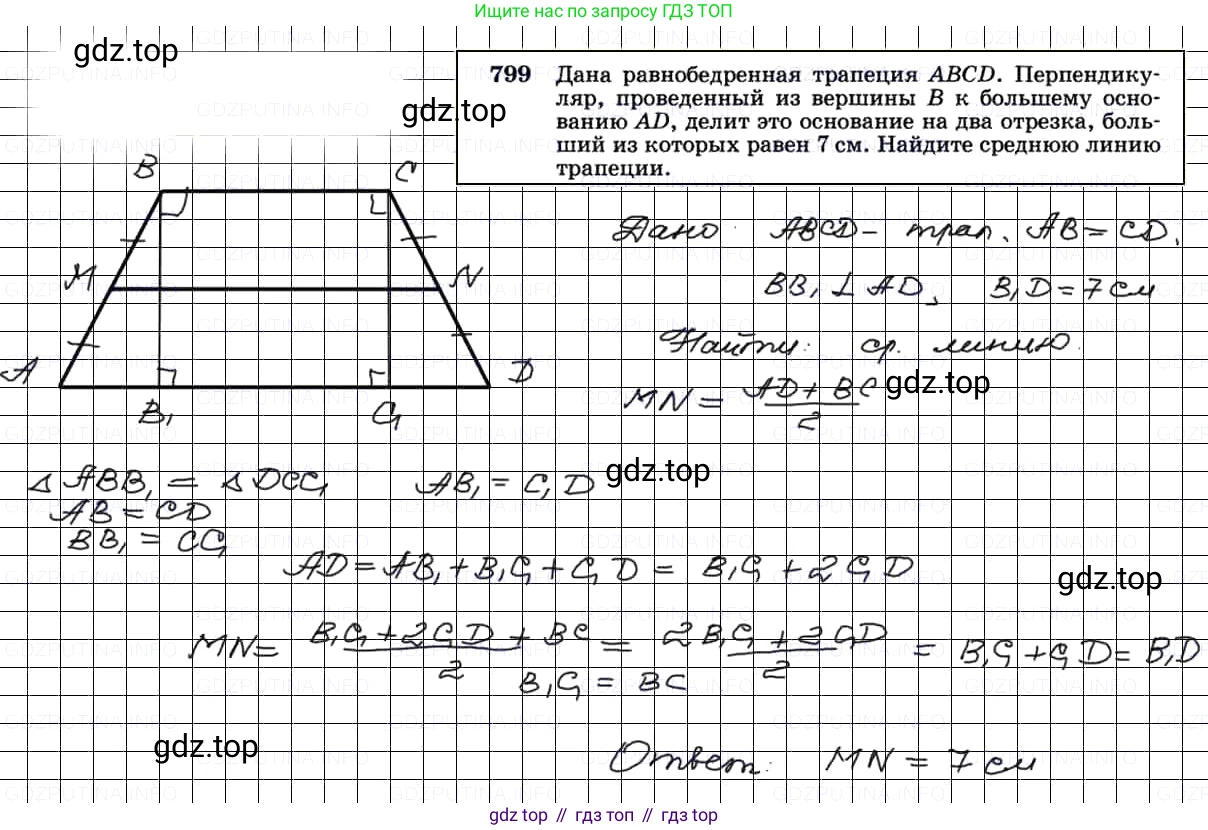 Ищите нас по запросу ГДЗ ТОП
gdz.top
799 Дана равнобедренная трапеция ABCD. Перпендику-
ляр, проведенный из вершины B к большему осно-
ванию AD, делит это основание на два отрезка, боль-
ший из которых равен 7 см. Найдите среднюю линию
трапеции.
gdz.top
B C
M N
A D
B₁ C₁
Дано: ABCD – трап. AB = CD,
BB₁ ⊥ AD, B₁D = 7 см
Найти: ср. линию.
MN = (AD + BC)/2
gdz.top
△ABB₁ = △DCC₁ AB₁ = C₁D
gdz.top
AB = CD
BB₁ = CC₁
AD = AB₁ + B₁C₁ + C₁D = B₁C₁ + 2C₁D
gdz.top
MN = (B₁C₁ + 2C₁D + BC)/2 = (2B₁C₁ + 2C₁D)/2 = B₁C₁ + C₁D = B₁D
B₁C₁ = BC
gdz.top
Ответ: MN = 7 см
gdz top // гдз топ // gdz top
GDZPUTINA.INFO